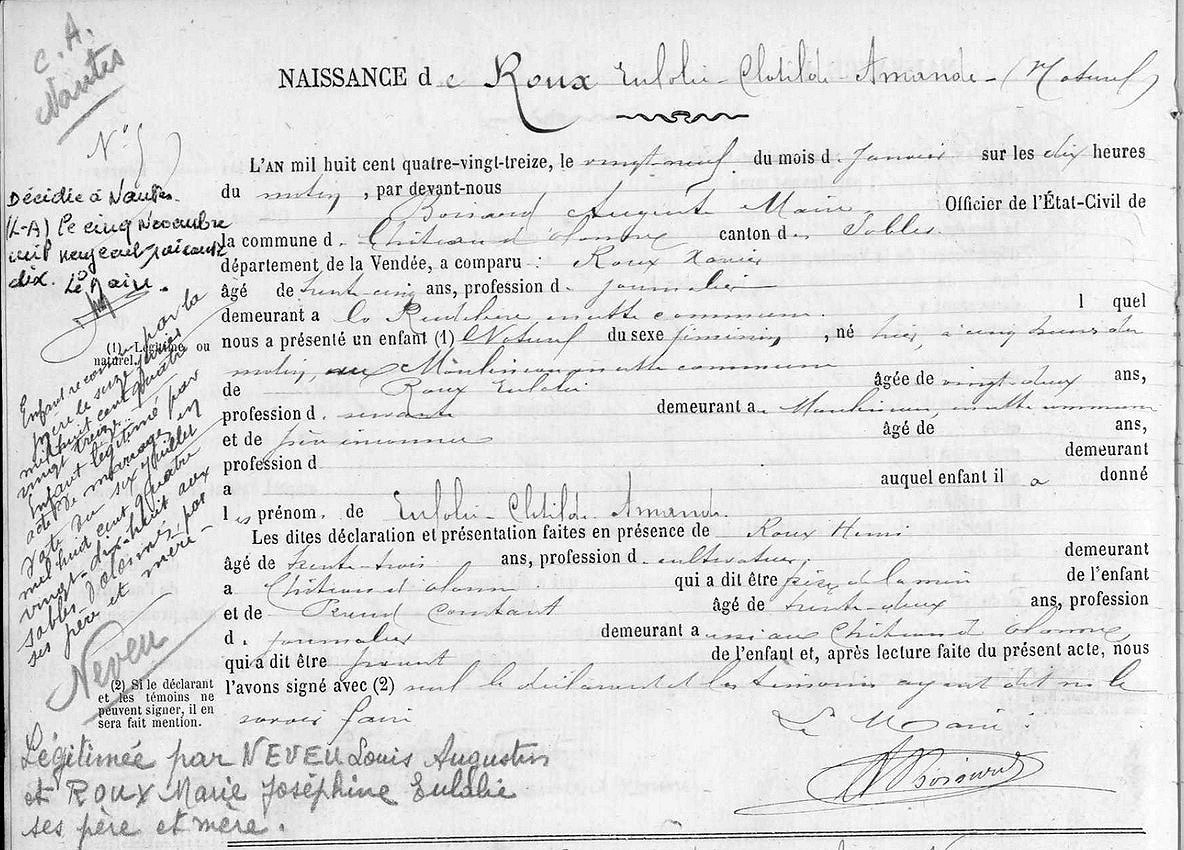 C. A.
Nantes
N° 5
NAISSANCE de Roux Eulalie Clotilde Amande - (Naturel)
L'AN mil huit cent quatre-vingt-treize, le vingt neuf du mois d. Janvier sur les dix heures
du matin, par devant-nous
Auguste Marie Officier de l'État-Civil de
la commune d. Château d'olonne canton d. Sables
département de la Vendée, a comparu : Roux Xavier
âgé de trente-cinq ans, profession d. journalier
demeurant a la en cette commune. l quel
nous a présenté un enfant (1) Naturel du sexe féminin, né hier, a cinq heures du
matin, au en cette commune
de Roux Eulalie âgée de vingt-deux ans,
profession d. servante demeurant a en cette commune
et de père inconnu âgé de ans,
profession d demeurant
a auquel enfant il a donné
l es prénom. de Eulalie Clotilde Amande.
Les dites déclaration et présentation faites en présence de Roux Henri
âgé de trente-trois ans, profession d. cultivateur, demeurant
a Château d'olonne qui a dit être de l'enfant
et de constant âgé de trente-deux ans, profession
d. journalier demeurant a aussi au Château d'olonne
qui a dit être parent de l'enfant et, après lecture faite du présent acte, nous
l'avons signé avec (2) seul le déclarant et les témoins ayant dit ne le
savoir faire
Le Maire
Décidée à Nantes
(L-A) le cinq Novembre
mil neuf cent soixante
dix. Le Maire.
(1) Légitime ou
naturel.
Enfant reconnu par la
mère le seize février
mil huit cent quatre
vingt treize.
Enfant légitimé par
acte de mariage en
date du six juillet
mil huit cent quatre
vingt-dix-huit aux
sables d'olonne, par
ses père et mère -
Neveu
(2) Si le déclarant
et les témoins ne
peuvent signer, il en
sera fait mention.
Légitimée par NEVEU Louis Augustin
et ROUX Marie Joséphine Eulalie
ses père et mère.